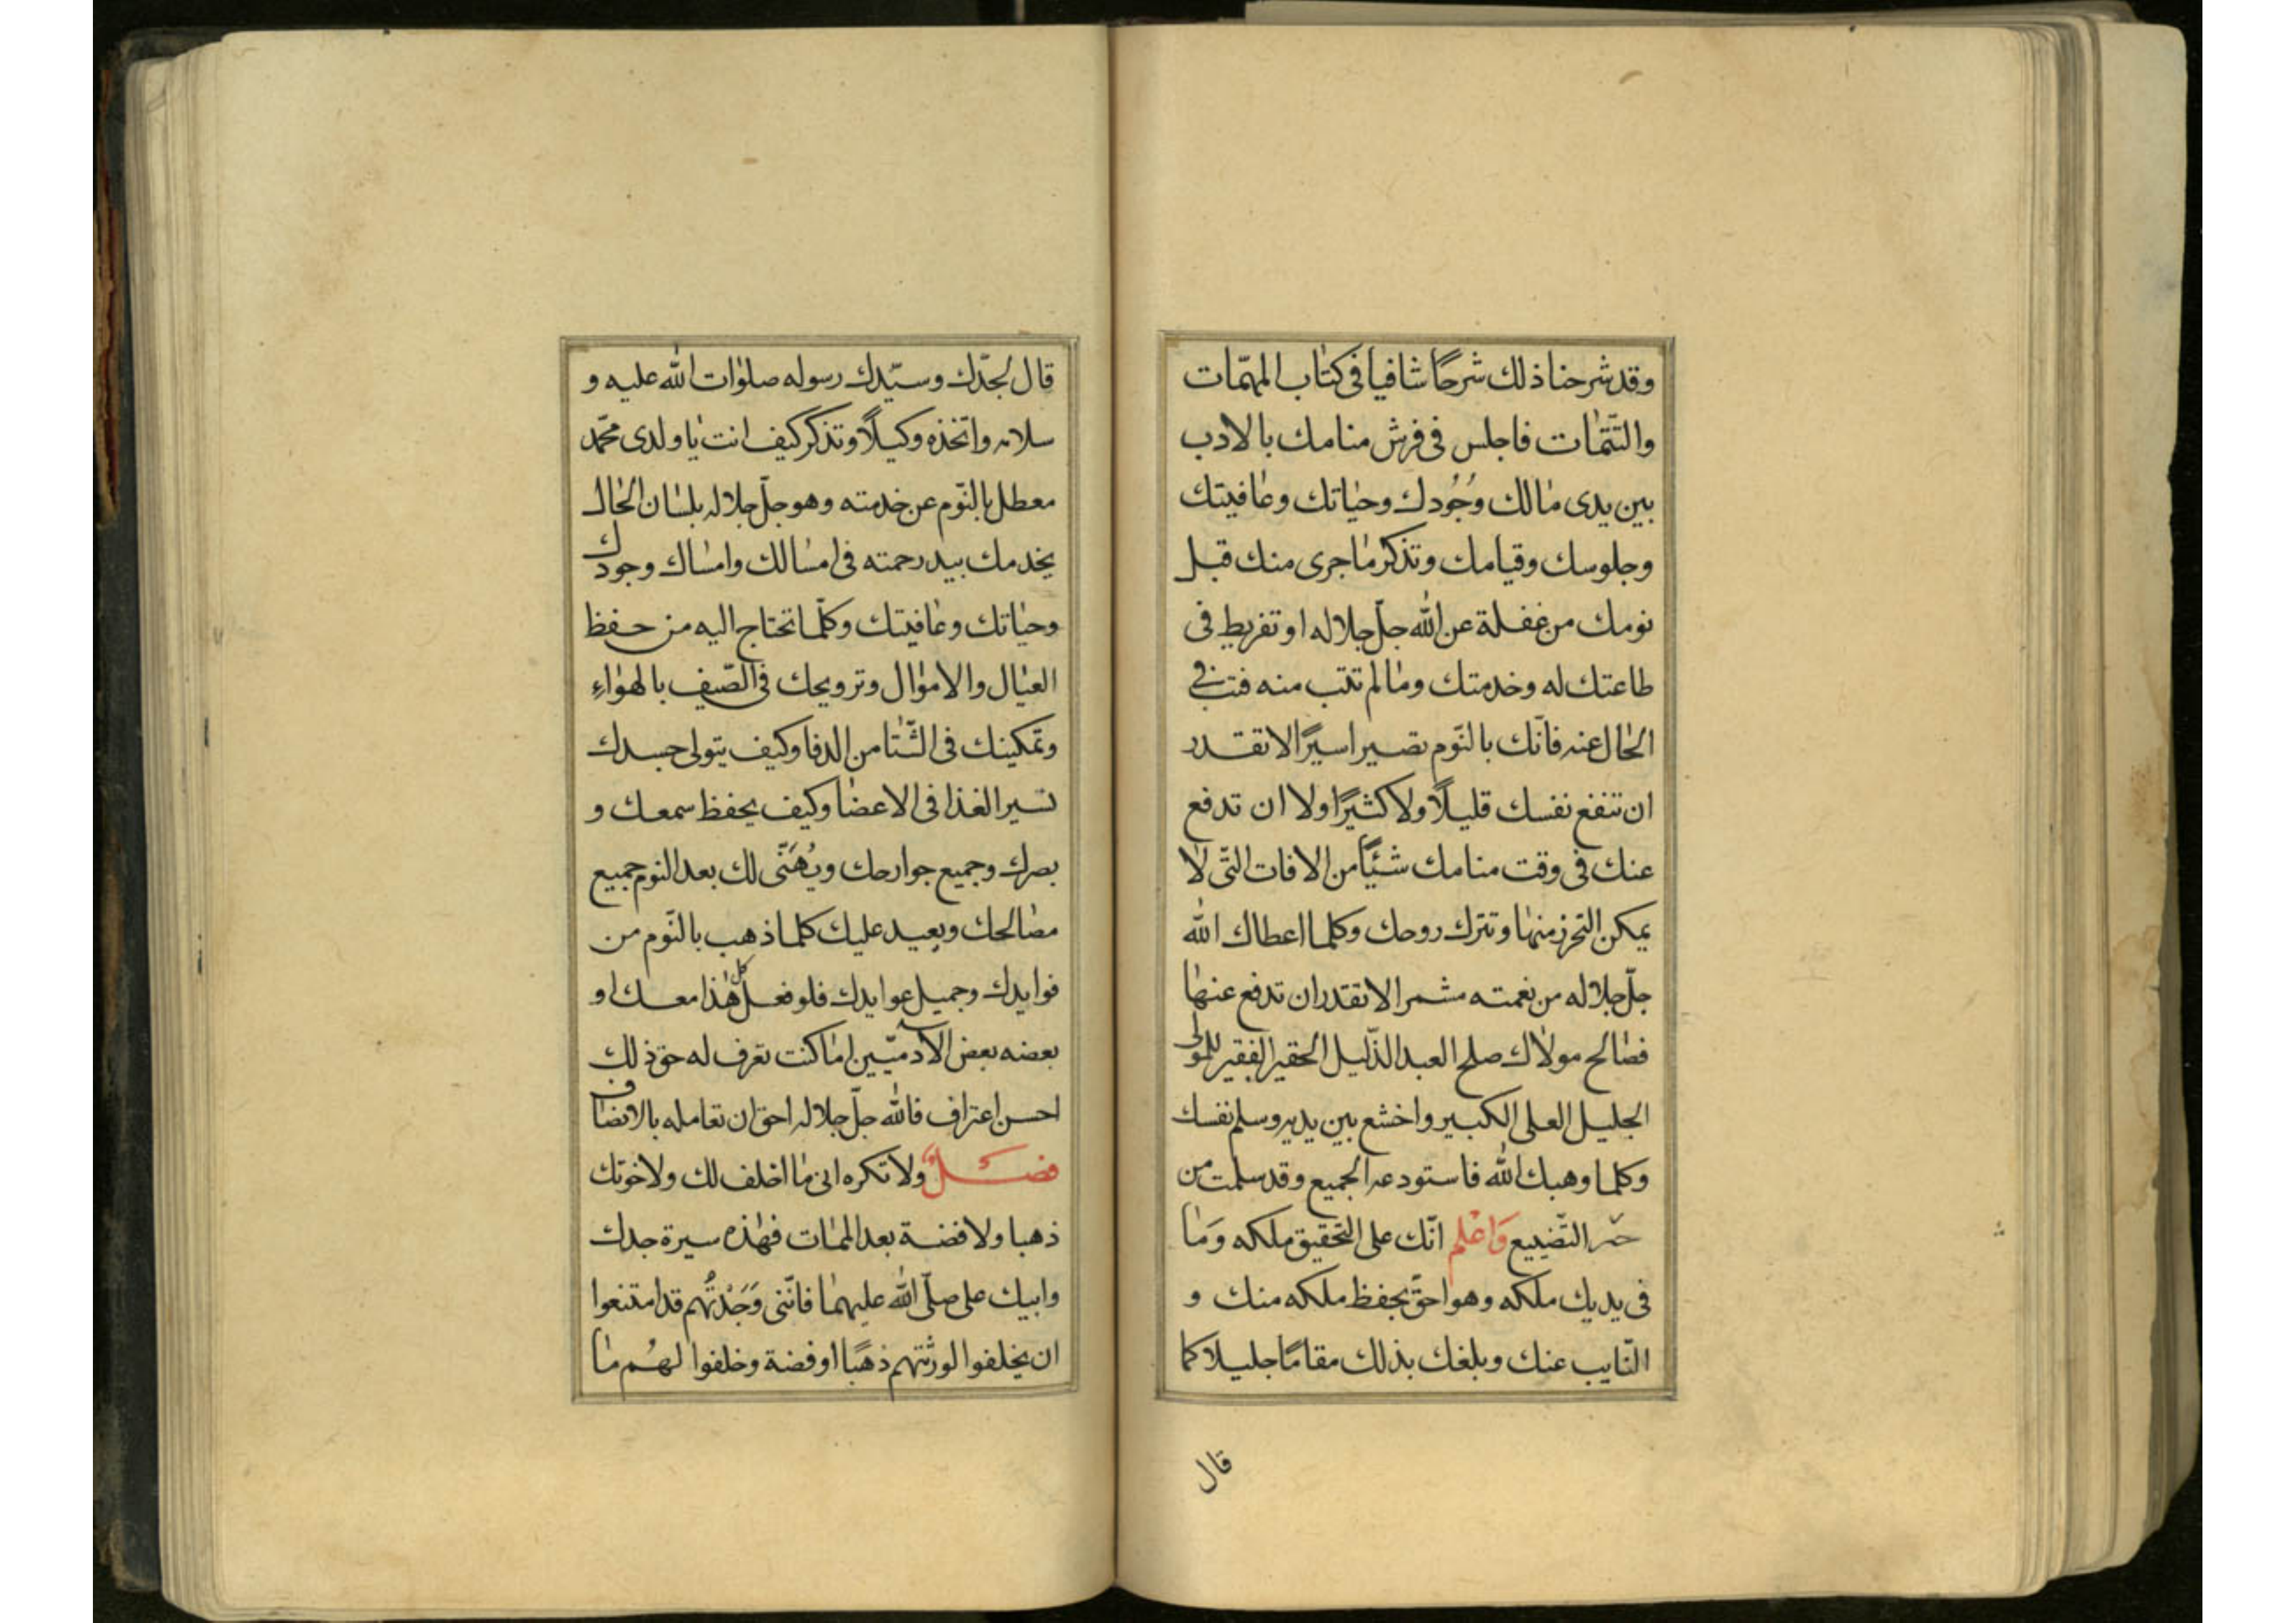 وقد شرحنا ذلك شرحًا شافيا فى كتاب المهمّات
والتّتمّات فاجلس فى فرش منامك بالادب
بين يدى مالك وُجُودك وحياتك وعافيتك
وجلوسك وقيامك وتذكر ماجرى منك قبل
نومك من غفلة عن الله جلّ جلاله او تفريط فى
طاعتك له وخدمتك ومالم تتب منه فتب فى
الحال عنه فانّك بالنّوم تصير اسيرًا لا تقدر
ان تنفع نفسك قليلًا ولا كثيرًا ولا ان تدفع
عنك فى وقت منامك شيئًا من الافات الّتى لا
يمكن التحرز منها وتترك روحك وكلما اعطاك الله
جلّ جلاله من نعمته لا تقدر ان تدفع عنها
فصالح مولاك صلح العبد الذّليل الحقير الفقير للمولى
الجليل العلى الكبير واخشع بين يديه وسلم نفسك
وكلما وهبك الله فاستودعه الجميع وقد سلمت من
التّضييع وَاعْلم انّك على التحقيق ملكه وَما
فى يديك ملكه وهو احقّ بحفظ ملكه منك و
النّايب عنك وبلغك بذلك مقامًا جليلا كما
قال
قال لجدّك وسيّدك رسوله صلوات الله عليه و
سلامه واتّخذه وكيلًا وتذكر كيف انت يا ولدى محمّد
معطل بالنّوم عن خدمته وهو جلّ جلاله بلسان الحال
يخدمك بيد رحمته فى امسالك وامساك وجودك
وحياتك وعافيتك وكلّما تحتاج اليه من حفظ
العيال والاموال وترويحك فى الصّيف بالهواءِ
وتمكينك فى الشّتا من الدفا وكيف يتولى جسدك
تسير الغذا فى الاعضا وكيف يحفظ سمعك و
بصرك وجميع جوارحك ويُهَنّى لك بعد النوم جميع
مصالحك ويعيد عليك كلما ذهب بالنّوم من
فوايدك وجميل عوايدك فلو فعل كل هذا معك او
بعضه بعض الآدميّين اما كنت تعرف له حق ذلك
احسن اعتراف فالله جلّ جلاله احق ان تعامله بالانصاف
فصل ولا تكره انى ما اخلف لك ولاخوتك
ذهبا ولا فضة بعد الممات فهذه سيرة جدك
وابيك على صلّى الله عليهما فانّنى وَجَدْتُهم قد امتنعوا
ان يخلفوا لورثتهم ذهبًا او فضة وخلفوا لهُم ما